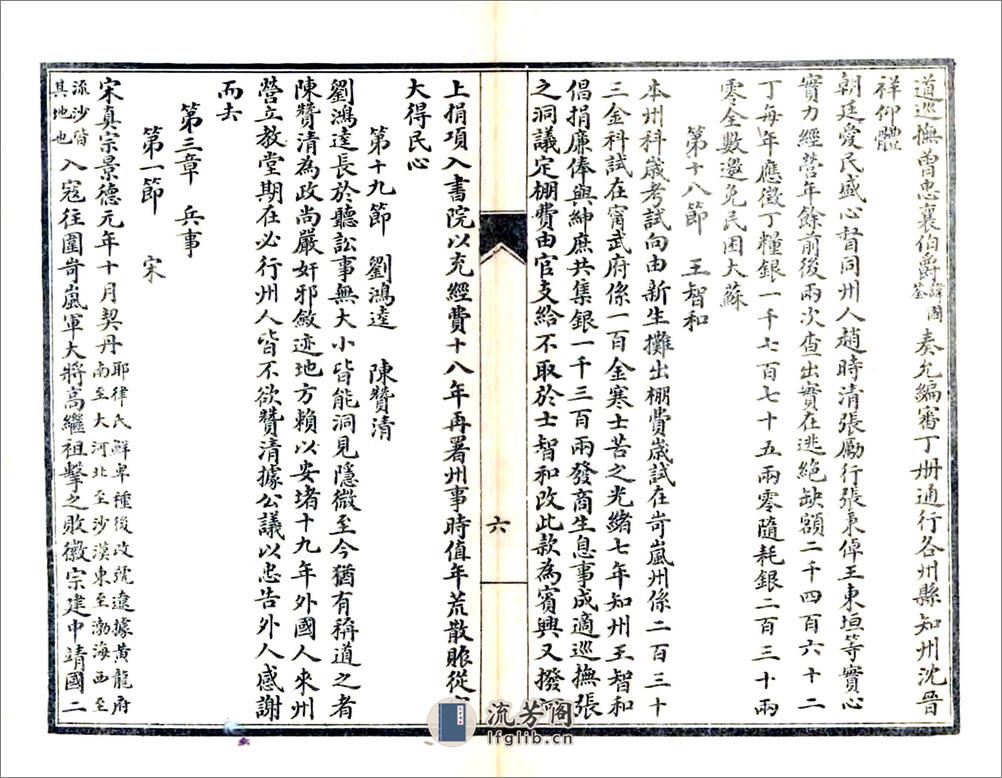 道巡撫曾忠襄伯爵諱國荃奏允編審丁册通行各州縣知州沈晉
祥仰體
朝廷愛民盛心督同州人趙時清張勵行張秉倬王東垣等實心
實力經營年餘前後兩次查出實在逃絕缺額二千四百六十二
丁每年應徵丁糧銀一千七百七十五兩零隨耗銀二百三十兩
零全數邀免民困大蘇
第十八節 王智和
本州科歲考試向由新生攤出棚費歲試在岢嵐州係二百三十
三金科試在甯武府係一百金寒士苦之光緒七年知州王智和
倡捐廉俸與紳庶共集銀一千三百兩發商生息事成適巡撫張
之洞議定棚費由官支給不取於士智和改此款為賓興又撥
六
上捐項入書院以充經費十八年再署州事時值年荒散賑從
大得民心
第十九節 劉鴻逵 陳贊清
劉鴻逵長於聽訟事無大小皆能洞見隱微至今猶有稱道之者
陳贊清為政尚嚴奸邪斂迹地方賴以安堵十九年外國人來州
營立教堂期在必行州人皆不欲贊清據公議以忠告外人感謝
而去
第三章 兵事
第一節 宋
宋真宗景德元年十月契丹耶律氏鮮卑種後改號遼據黃龍府南至大河北至沙漠東至渤海西至
流沙皆其地也入寇往圍岢嵐軍大將高繼祖擊之敗徽宗建中靖國二
流芳阁
lfglib.cn